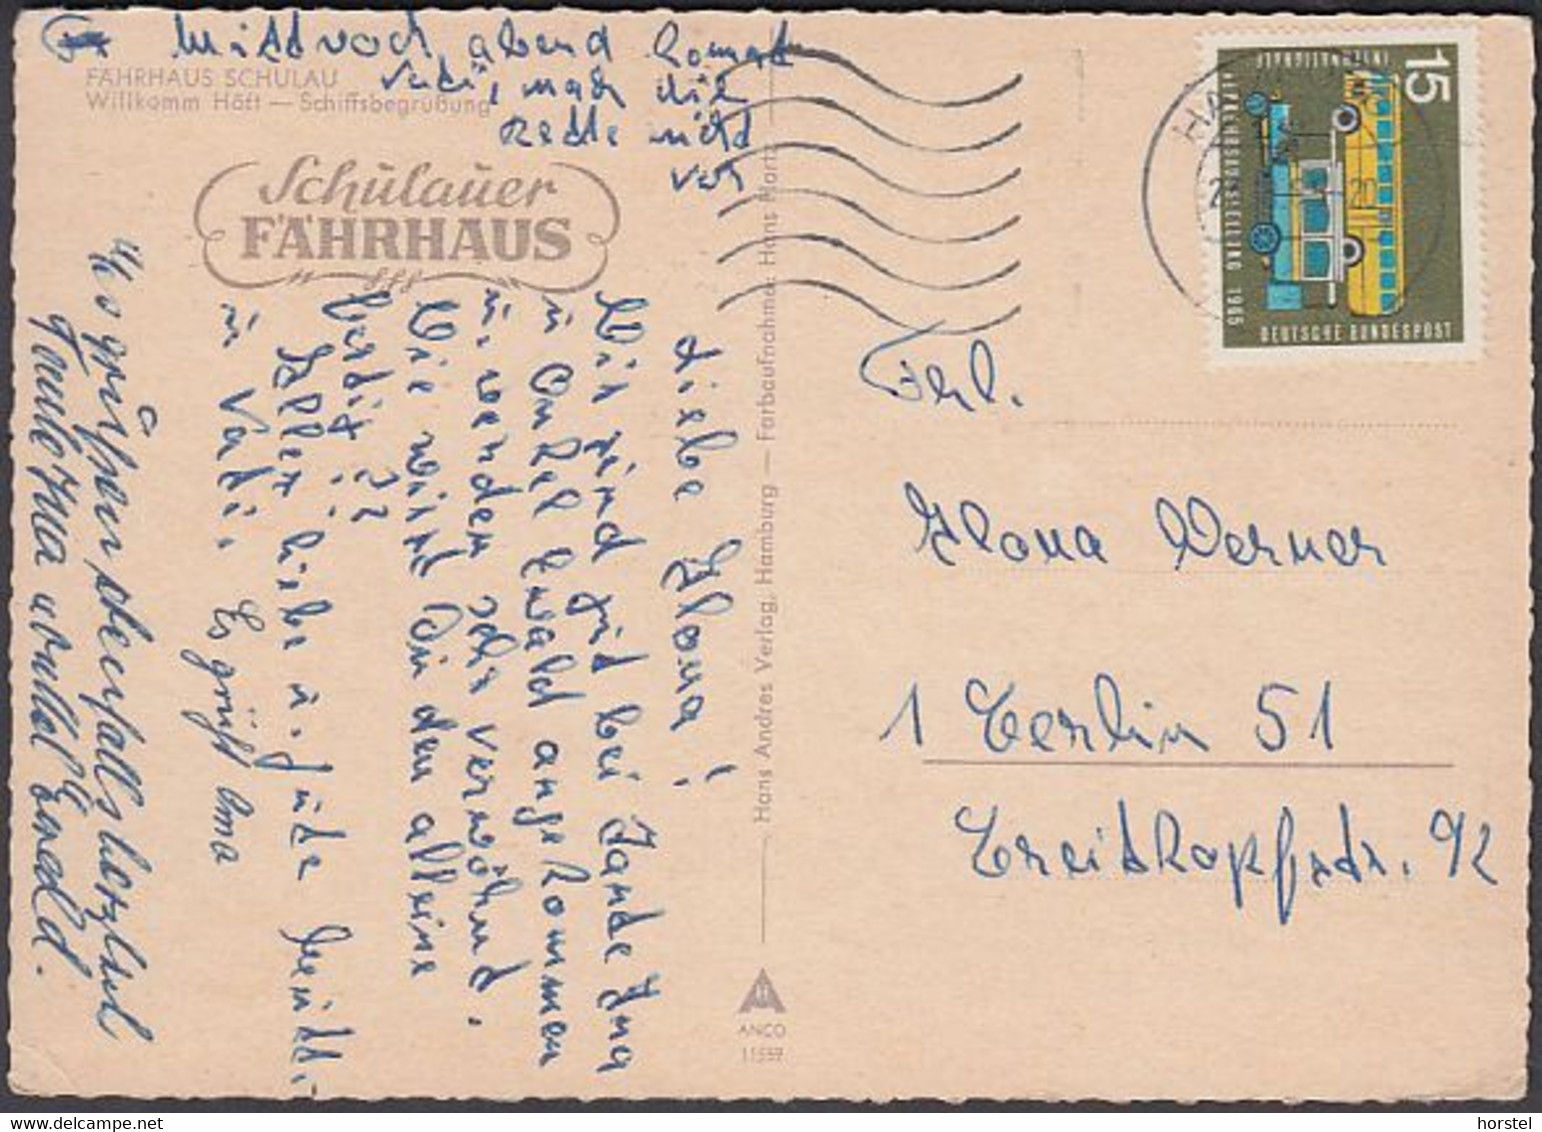 Mittwoch abend kommt
Vati, mach die
Kette nicht
vor
FÄHRHAUS SCHULAU
Willkomm Höft — Schiffsbegrüßung
Schulauer
FÄHRHAUS
Liebe Ilona!
Wir sind gut bei Tante Ina
u Onkel Ewald angekommen
u. werden sehr verwöhnt.
Wie wirst Du den alleine
fertig??
Selber liebe u. gute
u Vati. Es grüßt Oma
Es grüßen ebenfalls herzlich
Tante Ina und Onkel Ewald.
Hans Andres Verlag, Hamburg — Farbaufnahme: Hans Hartz
ANCO
11559
15
INTERNATIONALE
VERKEHRSAUSSTELLUNG 1965
DEUTSCHE BUNDESPOST
Frl.
Ilona Werner
1 Berlin 51
Breitkopfstr. 92
horstel